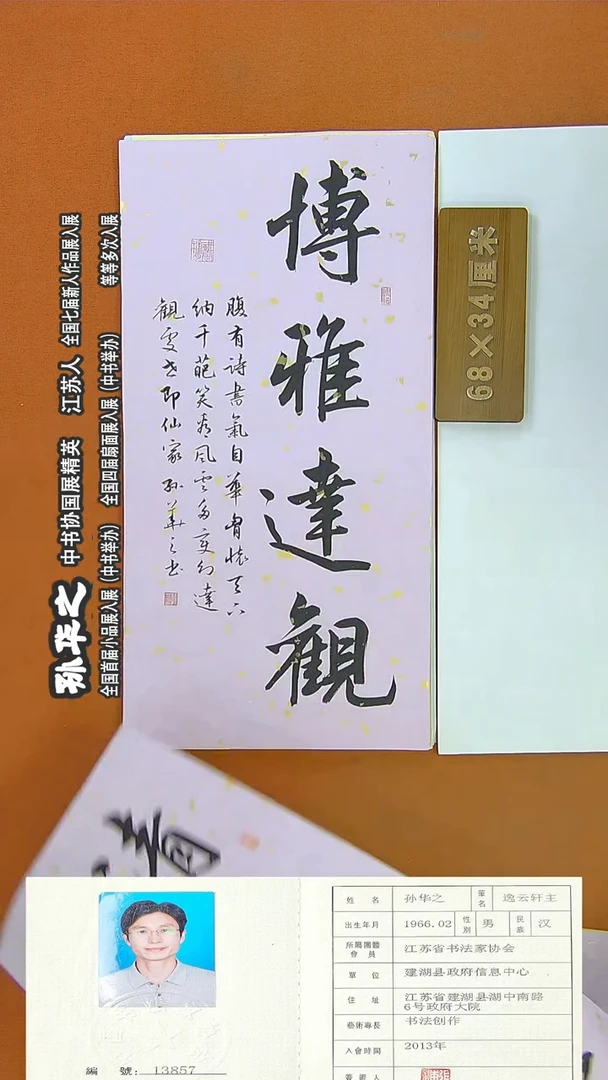 博雅達觀
腹有诗書氣自華胷懷天
纳千葩笑看風雲多变幻達
觀處世即仙家孙華之书
68×34厘米
孙华之 中书协国展精英 江苏人 全国七届新人作品展入展
全国首届小品展入展（中书举办） 全国四届扇面展入展（中书举办） 等等多次入展
編 號：13857
姓 名 孙华之 筆名 逸云轩主
出生年月 1966.02 性別 男 民族 汉
所屬團體會員 江苏省书法家协会
單 位 建湖县政府信息中心
住 址 江苏省建湖县湖中南路6号政府大院
藝術專長 书法创作
入會時間 2013年
簽發人